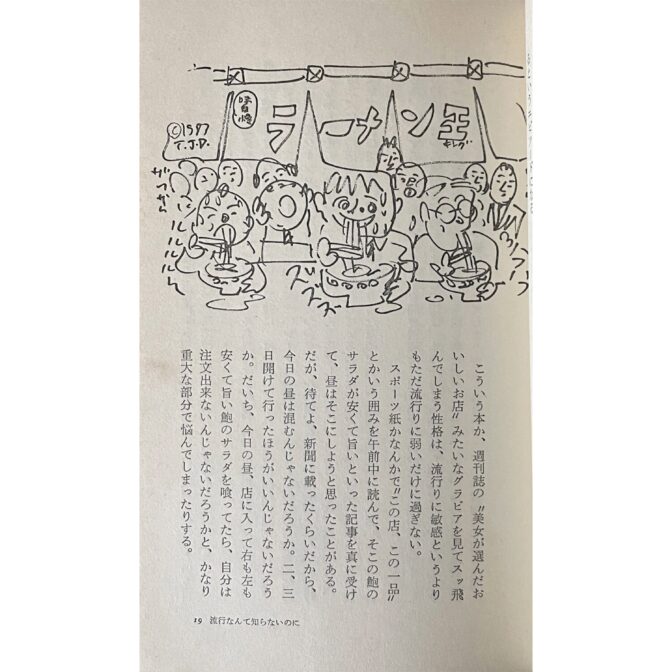 味噌
ラーメン王
©1987
T.J.D.
ズズズ
こういう本か、週刊誌の〝美女が選んだお
いしいお店〟みたいなグラビアを見てスッ飛
んでしまう性格は、流行りに敏感というより
もただ流行りに弱いだけに過ぎない。
スポーツ紙かなんかで〝この店、この一品〟
とかいう囲みを午前中に読んで、そこの鮑の
サラダが安くて旨いといった記事を真に受け
て、昼はそこにしようと思ったことがある。
だが、待てよ、新聞に載ったくらいだから、
今日の昼は混むんじゃないだろうか。二、三
日開けて行ったほうがいいんじゃないだろう
か。だいち、今日の昼、店に入って右も左も
安くて旨い鮑のサラダを喰ってたら、自分は
注文出来ないんじゃないだろうかと、かなり
重大な部分で悩んでしまったりする。
19 流行なんて知らないのに